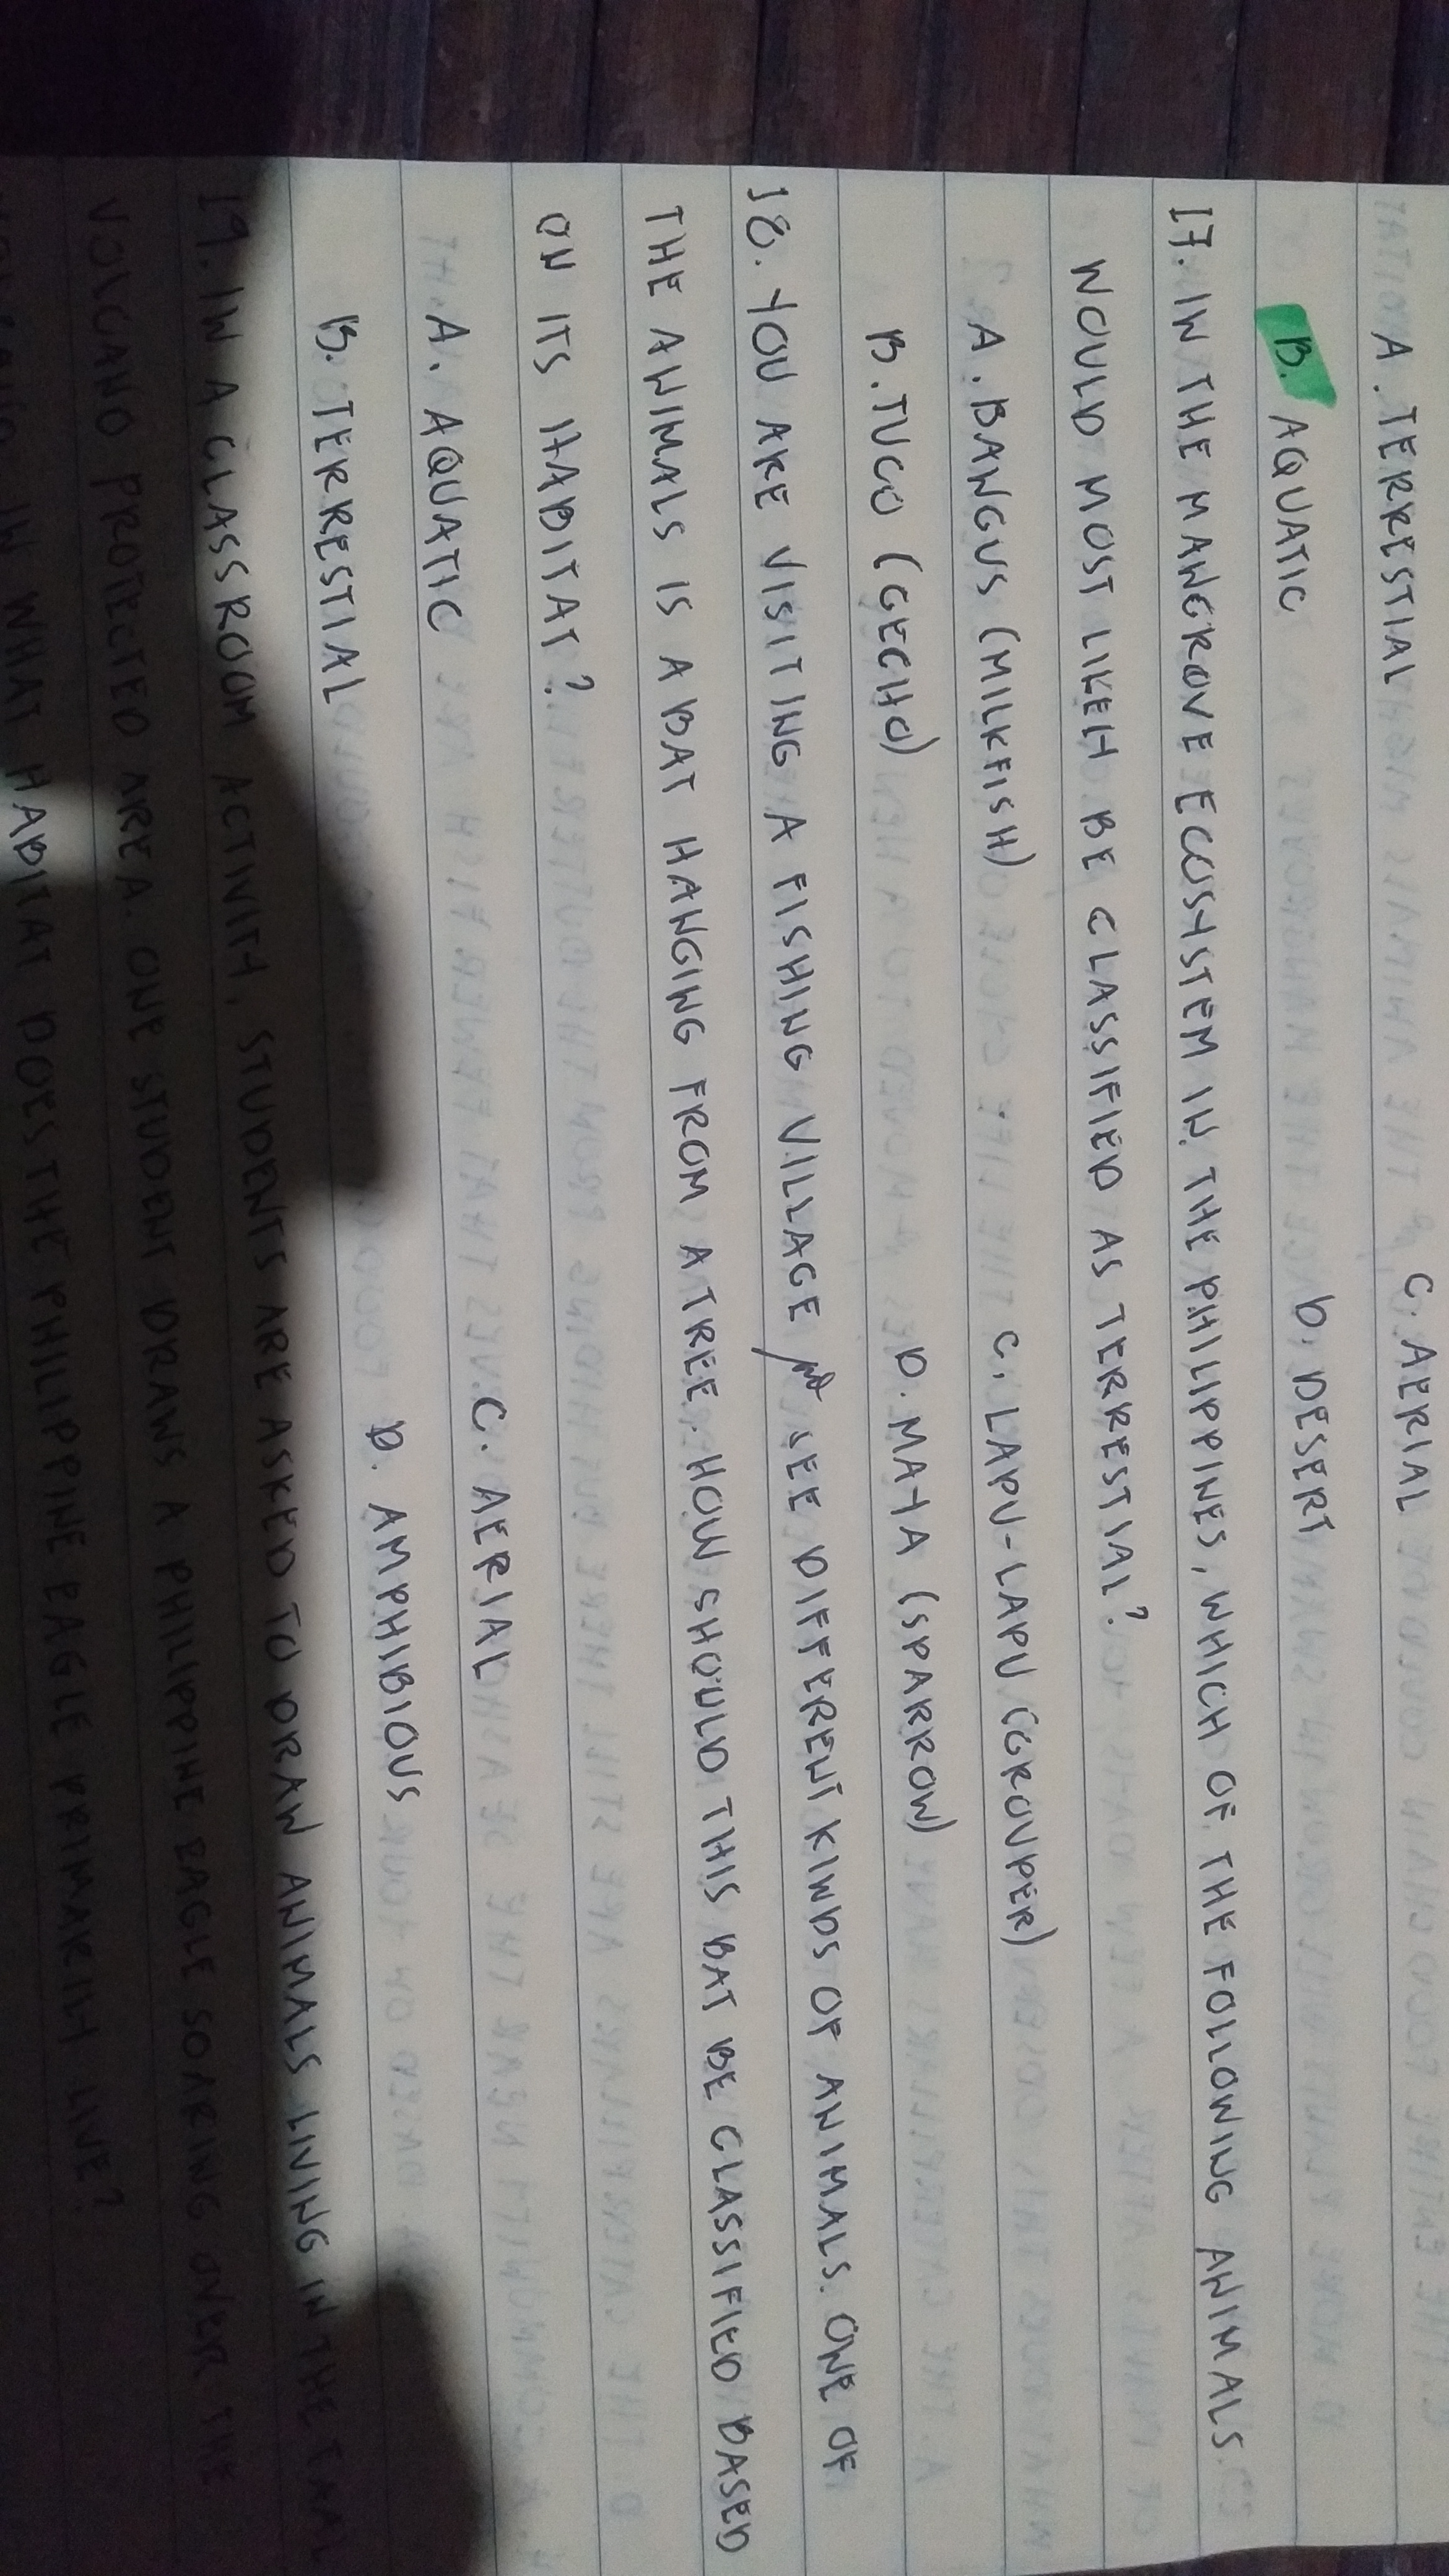 A. TERRESTIAL
C. AERIAL
B. AQUATIC
D. DESERT
17. IN THE MANGROVE ECOSYSTEM IN THE PHILIPPINES, WHICH OF THE FOLLOWING ANIMALS
WOULD MOST LIKELY BE CLASSIFIED AS TERRESTIAL?
A. BANGUS (MILKFISH)
C. LAPU-LAPU (GROUPER)
B. TUCO (GECHO)
D. MAYA (SPARROW)
18. YOU ARE VISITING A FISHING VILLAGE and SEE DIFFERENT KINDS OF ANIMALS. ONE OF
THE ANIMALS IS A BAT HANGING FROM A TREE. HOW SHOULD THIS BAT BE CLASSIFIED BASED
ON ITS HABITAT?
A. AQUATIC
C. AERIAL
B. TERRESTIAL
D. AMPHIBIOUS
19. IN A CLASSROOM ACTIVITY, STUDENTS ARE ASKED TO DRAW ANIMALS LIVING IN THE TAAL
VOLCANO PROTECTED AREA. ONE STUDENT DRAWS A PHILIPPINE EAGLE SOARING OVER THE
IN WHAT HABITAT DOES THE PHILIPPINE EAGLE PRIMARILY LIVE?